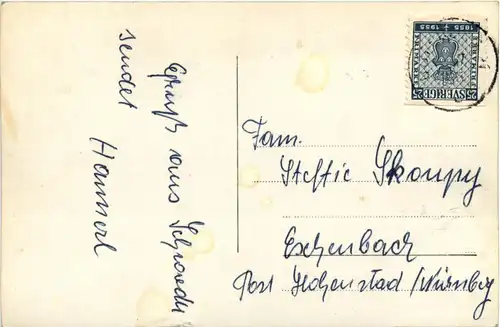 Gruß aus Schweden
sendet
Hannerl
Fam.
Steffie Skoupy
Eschenbach
Post Hohenstad/Nürnberg
1855 1955
SVERIGE
25